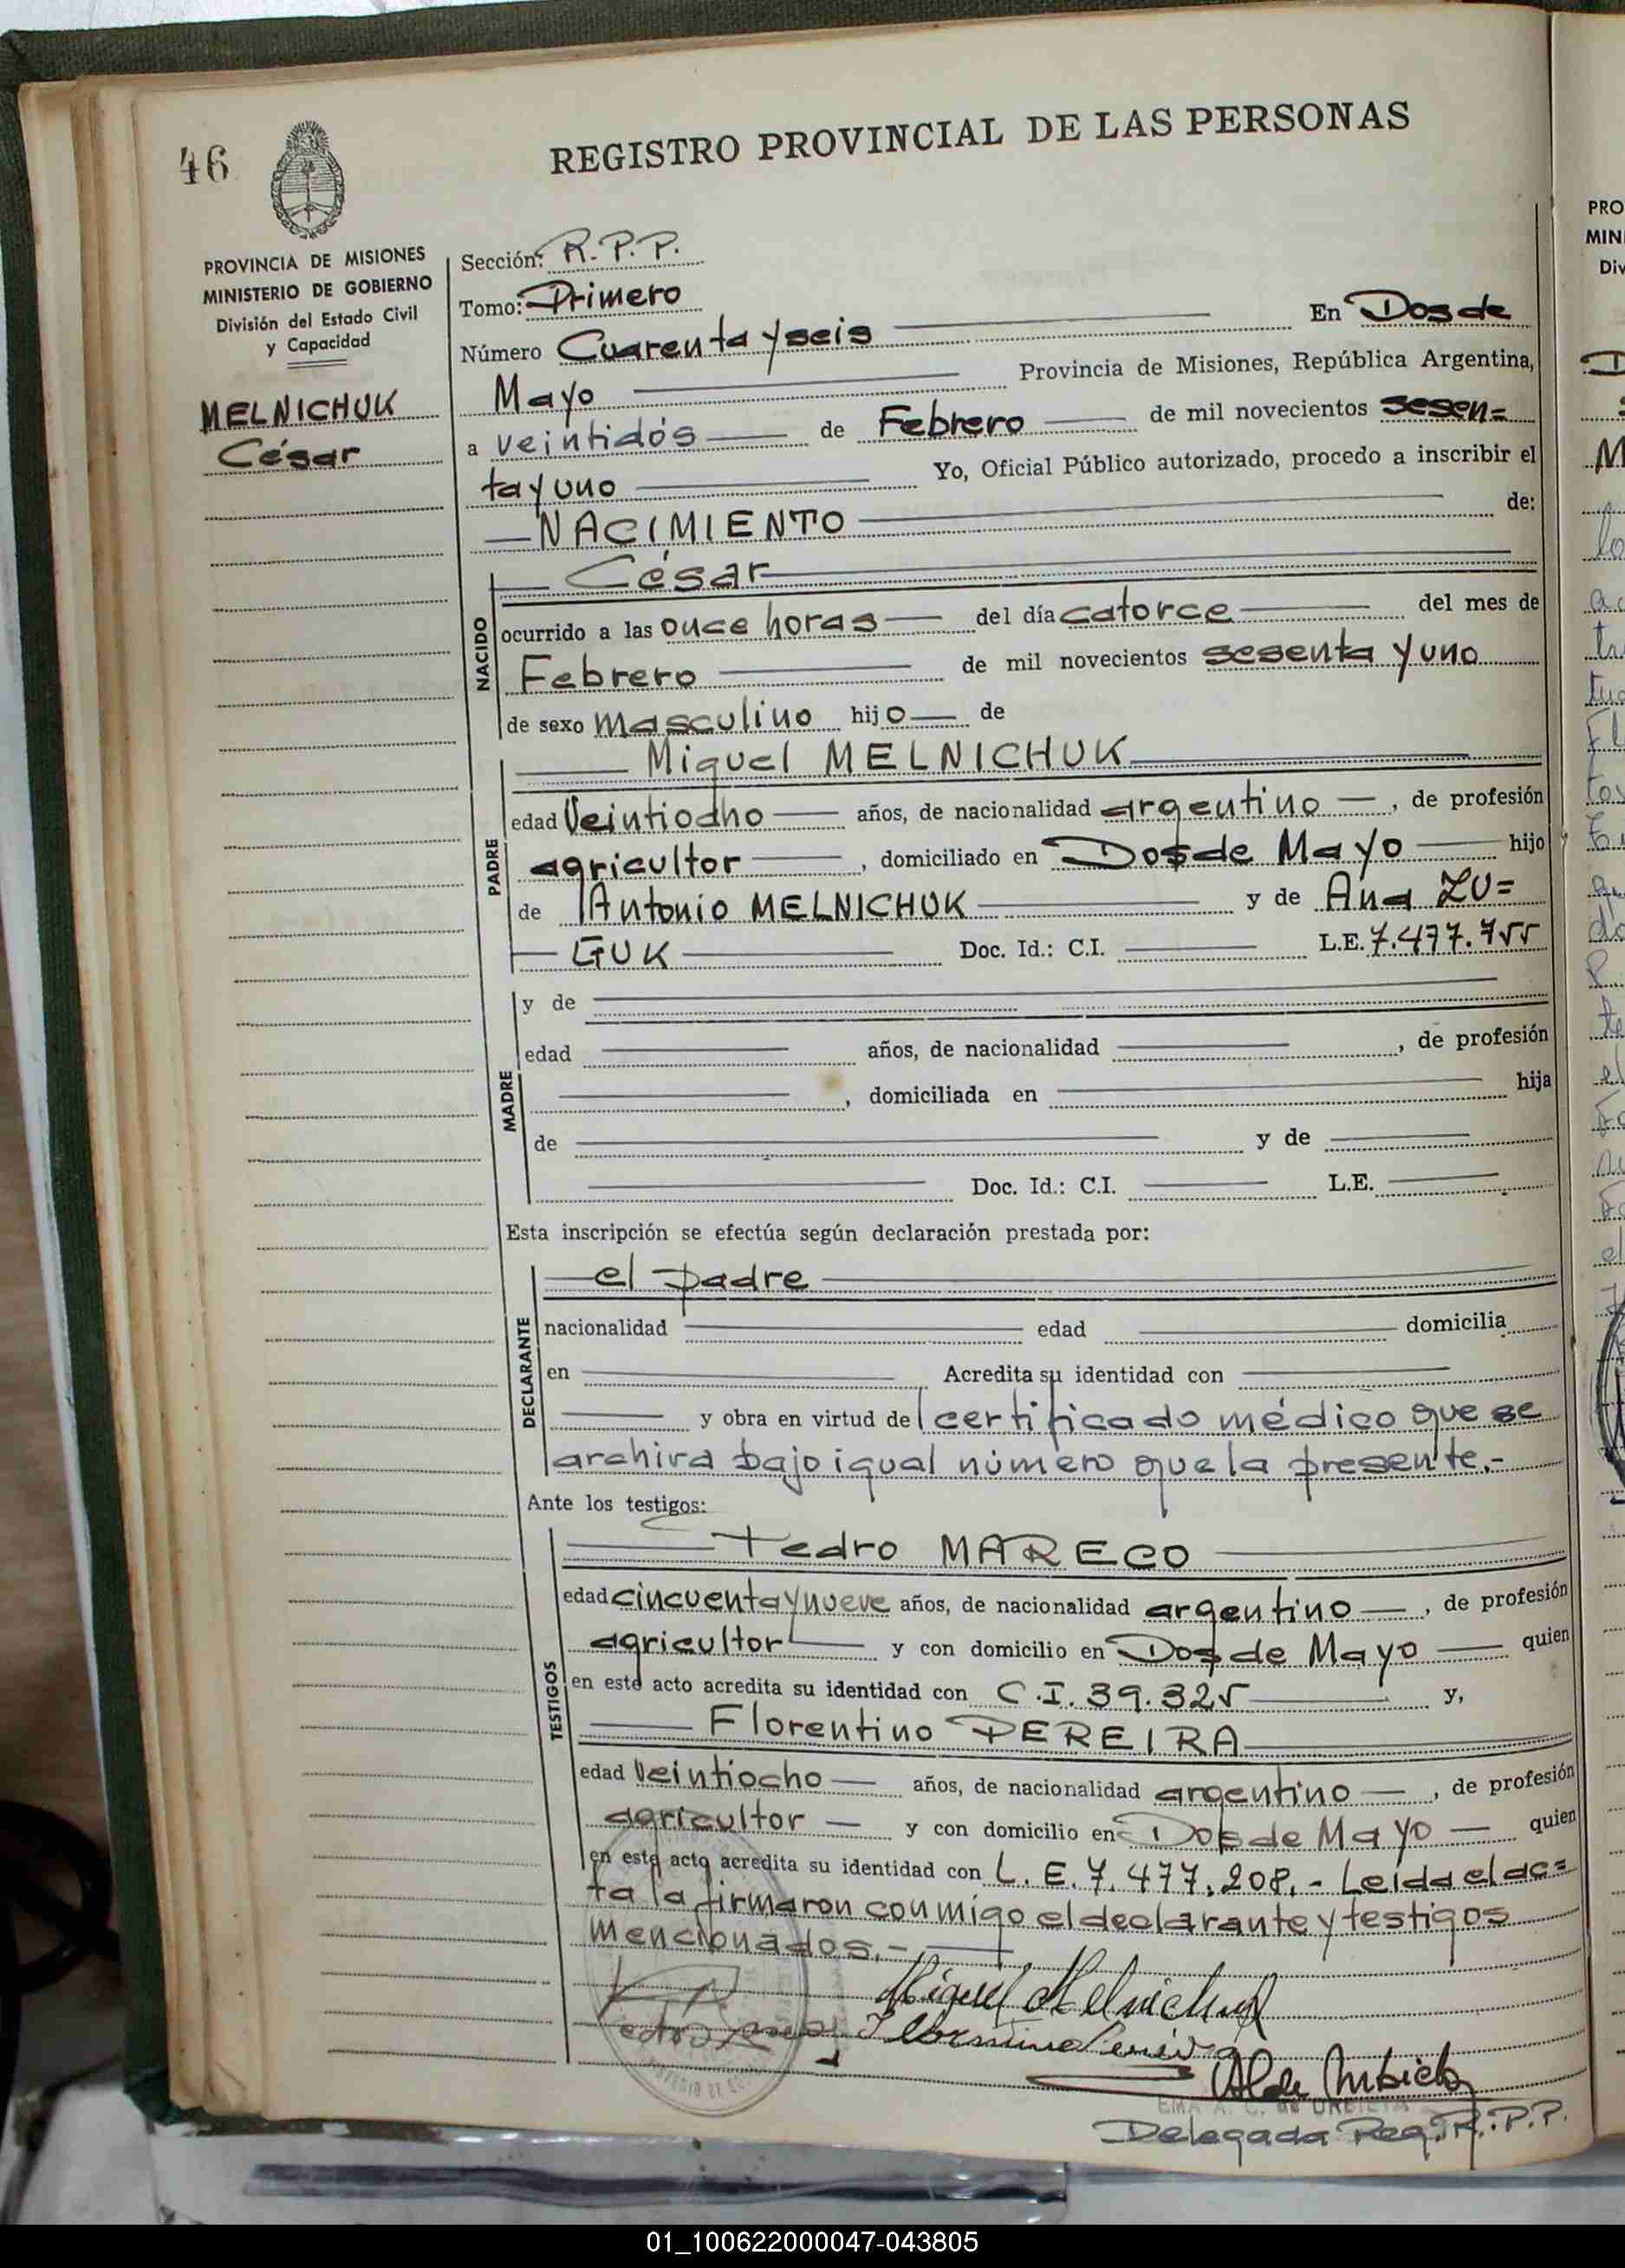 46
REGISTRO PROVINCIAL DE LAS PERSONAS
PROVINCIA DE MISIONES
MINISTERIO DE GOBIERNO
División del Estado Civil
y Capacidad
MELNICHUK
César
Sección: R.P.P.
Tomo: Primero
Número Cuarenta y seis En Dos de
Mayo Provincia de Misiones, República Argentina,
a veintidós de Febrero de mil novecientos sesen=
ta y uno Yo, Oficial Público autorizado, procedo a inscribir el
NACIMIENTO de:
NACIDO
César
ocurrido a las once horas del día catorce del mes de
Febrero de mil novecientos sesenta y uno
de sexo masculino hijo de
PADRE
Miguel MELNICHUK
edad Veintiocho años, de nacionalidad argentino, de profesión
agricultor, domiciliado en Dos de Mayo hijo
de Antonio MELNICHUK y de Ana ZU=
GUK Doc. Id.: C.I. L.E. 7.477.755
MADRE
y de
edad años, de nacionalidad , de profesión
, domiciliada en hija
de y de
Doc. Id.: C.I. L.E.
Esta inscripción se efectúa según declaración prestada por:
DECLARANTE
el padre
nacionalidad edad domicilia
en Acredita su identidad con
y obra en virtud del certificado médico que se
archiva bajo igual número que la presente.-
Ante los testigos:
TESTIGOS
Pedro MARECO
edad cincuenta y nueve años, de nacionalidad argentino, de profesión
agricultor y con domicilio en Dos de Mayo quien
en este acto acredita su identidad con C.I. 39.325 y,
Florentino PEREIRA
edad Veintiocho años, de nacionalidad argentino, de profesión
agricultor y con domicilio en Dos de Mayo quien
en este acto acredita su identidad con L.E. 7.477.208.- Leída el ac=
ta la firmaron conmigo el declarante y testigos
mencionados.-
Miguel Melnichuk
Florentino Pereira
EMA A. C. de URBIETA
Delegada Reg. R.P.P.
PRO
MIN
Div
01_100622000047-043805